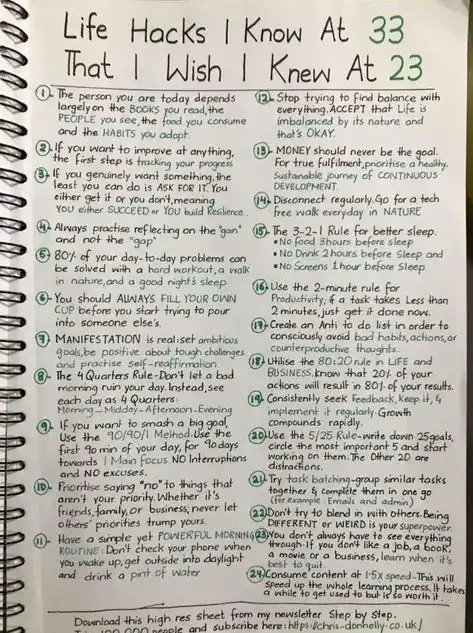 Life Hacks I Know At 33
That I Wish I Knew At 23
1. The person you are today depends
largely on the BOOKS you read, the
PEOPLE you see, the food you consume
and the HABITS you adopt.
2. If you want to improve at anything,
the first step is tracking your progress
3. If you genuinely want something, the
least you can do is ASK FOR IT. You
either get it or you don't, meaning
YOU either SUCCEED or YOU build Resilience.
4. Always practise reflecting on the "gain"
and not the "gap"
5. 80% of your day-to-day problems can
be solved with a hard workout, a walk
in nature, and a good night's sleep.
6. You should ALWAYS FILL YOUR OWN
CUP before you start trying to pour
into someone else's.
7. MANIFESTATION is real: set ambitious
goals, be positive about tough challenges
and practise self-reaffirmation.
8. The 4 Quarters Rule - Don't let a bad
morning ruin your day. Instead, see
each day as 4 Quarters:
Morning - Midday - Afternoon - Evening
9. If you want to smash a big goal,
Use the 90/90/1 Method: Use the
first 90 min of your day, for 90 days
towards 1 Main focus NO Interruptions
and NO excuses.
10. Prioritise saying "no" to things that
aren't your priority. Whether it's
friends, family, or business, never let
others' priorities trump yours.
11. Have a simple yet POWERFUL MORNING
ROUTINE: Don't check your phone when
you wake up, get outside into daylight
and drink a pint of water
12. Stop trying to find balance with
everything. ACCEPT that Life is
imbalanced by its nature and
that's OKAY.
13. MONEY should never be the goal.
For true fulfilment, prioritise a healthy,
Sustainable journey of CONTINUOUS
DEVELOPMENT.
14. Disconnect regularly. Go for a tech
free walk everyday in NATURE
15. The 3-2-1 Rule for better sleep.
• No food 3 hours before sleep
• No Drink 2 hours before Sleep and
• No Screens 1 hour before Sleep
16. Use the 2-minute rule for
Productivity; if a task takes Less than
2 minutes, just get it done now.
17. Create an Anti to do list in order to
consciously avoid bad habits, actions, or
counterproductive thoughts.
18. Utilise the 80:20 rule in LIFE and
BUSINESS. Know that 20% of your
actions will result in 80% of your results.
19. Consistently seek Feedback, Keep it, &
implement it regularly. Growth
compounds rapidly.
20. Use the 5/25 Rule - write down 25 goals,
circle the most important 5 and start
working on them. The Other 20 are
distractions.
21. Try task batching - group similar tasks
together & complete them in one go
(for example Emails and admin)
22. Don't try to blend in with others. Being
DIFFERENT or WEIRD is your superpower.
23. You don't always have to see everything
through - If you don't like a job, a book,
a movie or a business, learn when it's
best to quit
24. Consume content at 1.5x speed - This will
speed up the whole learning process. It takes
a while to get used to but is so worth it.
Download this high res sheet from my newsletter Step by Step.
people and subscribe here: https://chris-donnelly.co.uk/